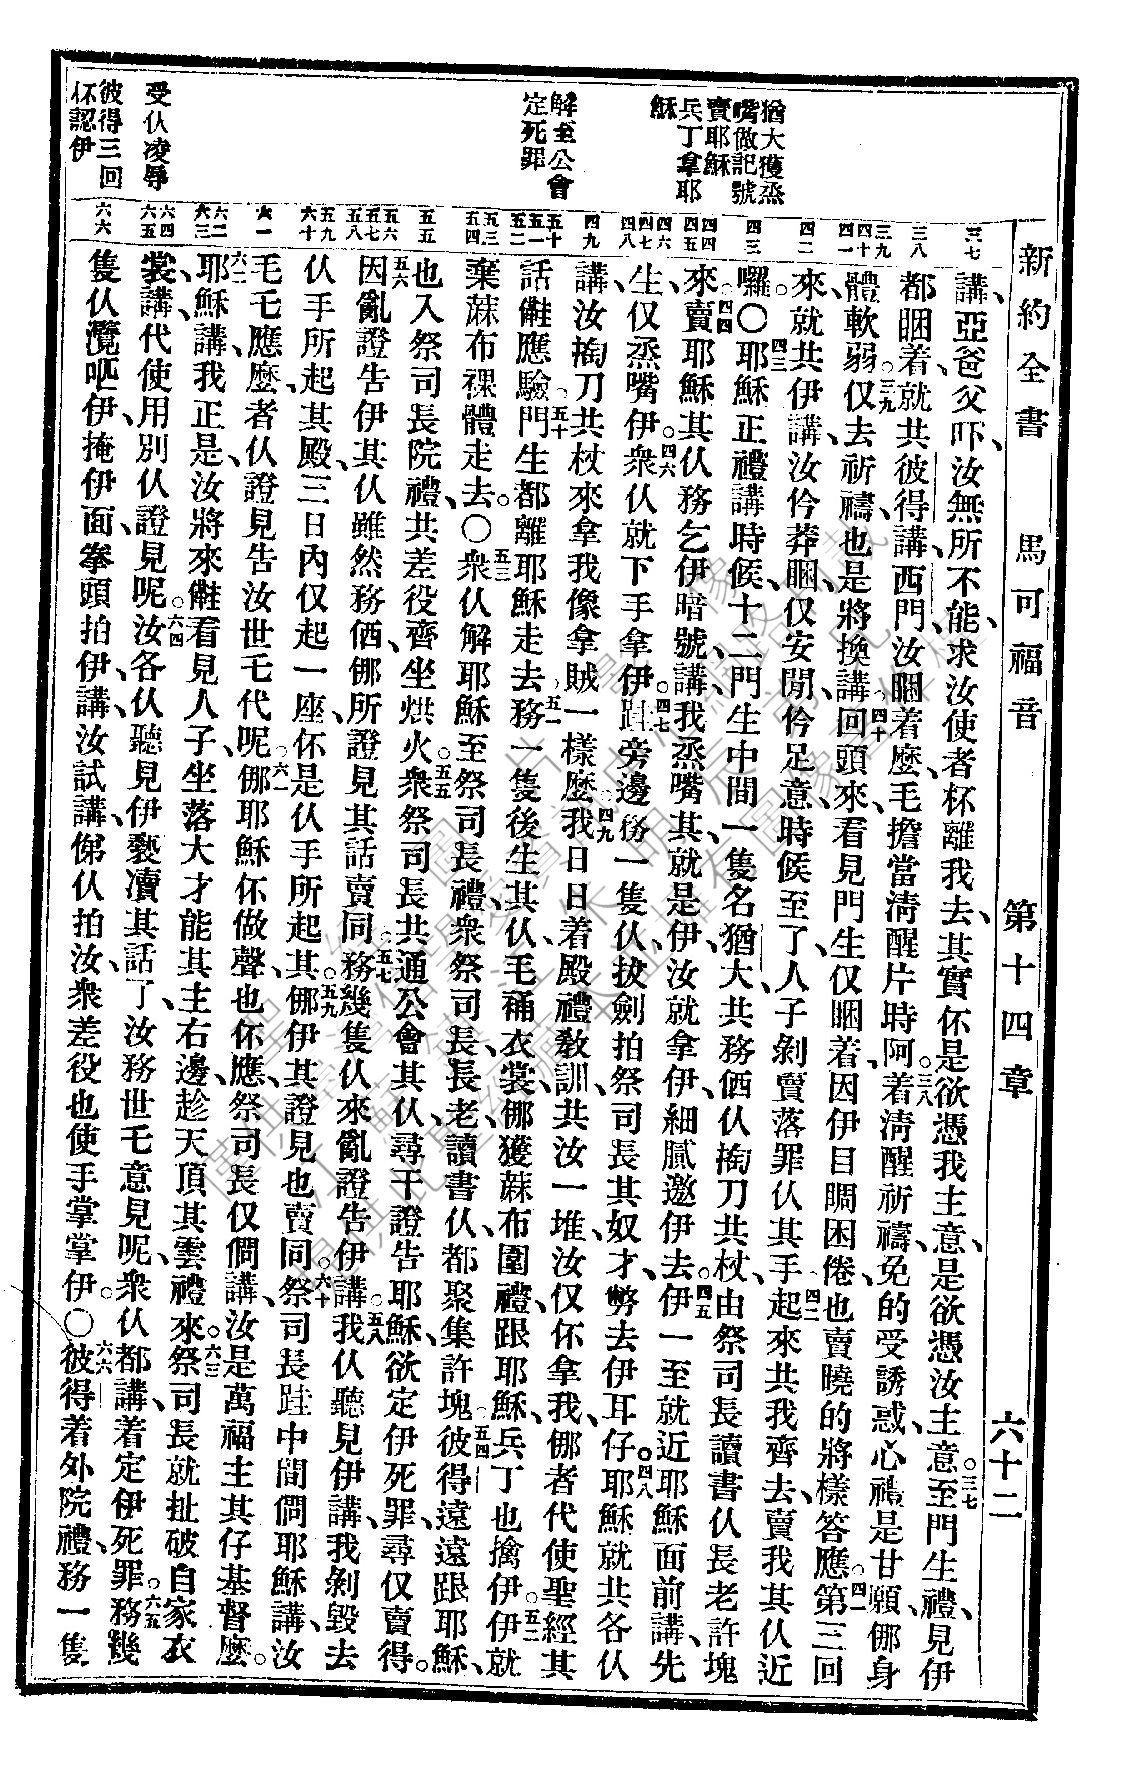 新約全書 馬可福音 第十四章 六十二
三七 三八 三九 四十 四一 四二 四三 四四 四五 四六 四七 四八 四九 五十 五一 五二 五三 五四 五五 五六 五七 五八 五九 六十 六一 六二 六三 六四 六五 六六
猶大獲烝嘴做記號賣耶穌
兵丁拿耶穌
解至公會定死罪
受仈凌辱
彼得三回伓認伊
講、亞爸父吓、汝無所不能、求汝使者杯離我去、其實伓是欲憑我主意、是欲憑汝主意。三七至門生禮、見伊
都睏着、就共彼得講、西門、汝睏着麼、毛擔當清醒片時阿。三八着清醒祈禱、免的受誘惑、心禮是甘願、㑚身
體軟弱。三九仅去祈禱、也是將換講。四十回頭來、看見門生仅睏着、因伊目睭困倦、也賣曉的將樣答應。四一第三回
來、就共伊講、汝仱莽睏、仅安閒、仱足意、時候至了、人子剝賣落罪仈其手。四二起來共我齊去、賣我其仈近
囉。〇四三耶穌正禮講時候、十二門生中間一隻名猶大、共務価仈掏刀共杖、由祭司長讀書仈長老許塊
來。四四賣耶穌其仈務乞伊暗號講、我烝嘴其、就是伊、汝就拿伊、細膩邀伊去。四五伊一至就近耶穌面前講、先
生、仅烝嘴伊。四六衆仈就下手拿伊。四七跬旁邊務一隻仈拔劍拍祭司長其奴才、弊去伊耳仔。四八耶穌就共各仈
講、汝掏刀共杖來拿我、像拿賊一樣麼。四九我日日着殿禮敎訓、共汝一堆、汝仅伓拿我、㑚者代使聖經其
話䧹應驗。五十門生都離耶穌走去。五一務一隻後生其仈、毛䄻衣裳、㑚獲蔴布圍禮跟耶穌、兵丁也擒伊。五二伊就
棄蔴布裸體走去。〇五三衆仈解耶穌至祭司長禮、衆祭司長、長老、讀書仈、都聚集許塊。五四彼得遠遠跟耶穌、
也入祭司長院禮、共差役齊坐烘火。五五衆祭司長共通公會其仈、尋干證告耶穌、欲定伊死罪、尋仅賣得。
五六因亂證告伊其仈雖然務価、㑚所證見其話賣同。五七務幾隻仈來亂證告伊講、五八我仈聽見伊講、我剝毀去
仈手所起其殿、三日內仅起一座、伓是仈手所起其。五九㑚伊其證見也賣同。六十祭司長跬中間、僩耶穌講、汝
毛乇應麼、者仈證見告汝世乇代呢。六一㑚耶穌伓做聲、也伓應、祭司長仅僩講、汝是萬福主其仔基督麼。
六二耶穌講、我正是、汝將來䧹看見人子坐落大才能其主右邊、趁天頂其雲禮來。六三祭司長就扯破自家衣
裳、講、代使用別仈證見呢。六四汝各仈聽見伊褻瀆其話了、汝務世乇意見呢、衆仈都講、着定伊死罪。六五務幾
隻仈瀾吧伊、掩伊面、拳頭拍伊、講、汝試講、俤仈拍汝、衆差役也使手掌掌伊。〇六六彼得着外院禮、務一隻